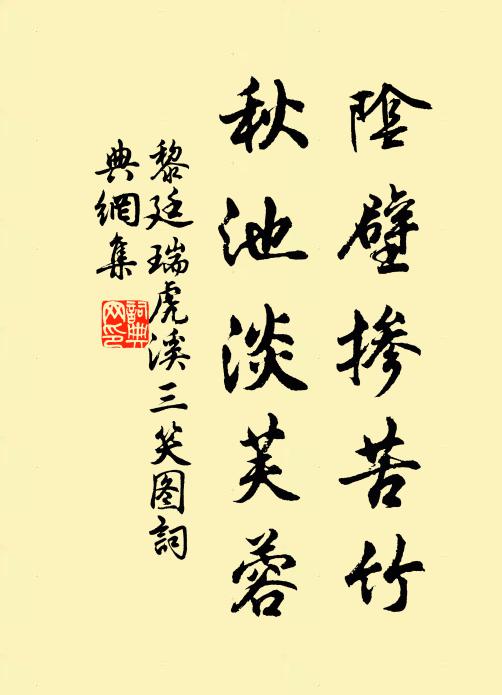 陰壁摻苦竹
秋池淡芙蓉
黎廷瑞虎溪三笑图詞
典網集
詞典网印